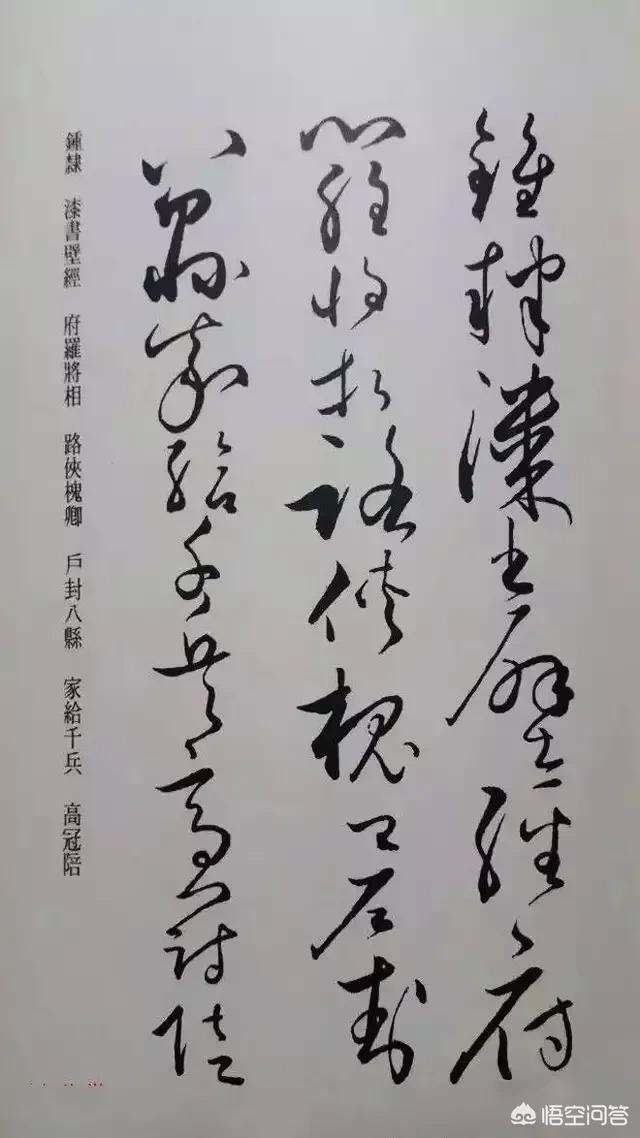 鍾隸漆書壁經府
羅將相路俠槐卿戶封
八縣家給千兵高冠陪
鍾隸 漆書壁經 府羅將相 路俠槐卿 戶封八縣 家給千兵 高冠陪
悟空问答